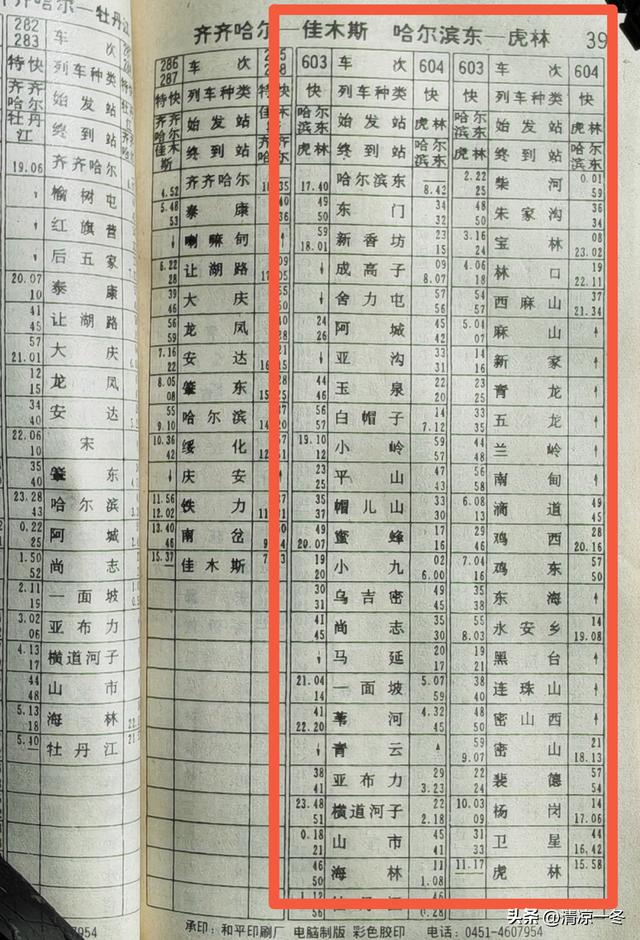 齐齐哈尔—牡丹江
282
283
车次
特快 列车种类
齐齐哈尔 始发站
牡丹江 终到站
19.06 齐齐哈尔
榆树屯
红旗营
后五家
20.07 10 泰康
41 45 让湖路
57 21.01 大庆
12 15 龙凤
34 40 安达
22.06 10 宋
35 40 肇东
23.28 43 哈尔滨
0.22 25 阿城
1.50 52 尚志
2.11 19 一面坡
3.02 06 亚布力
4.13 17 横道河子
44 48 山市
5.13 18 海林
5.40 牡丹江
齐齐哈尔—佳木斯 哈尔滨东—虎林 39
286
287
车次
特快 列车种类 特快
齐齐哈尔 始发站
佳木斯 终到站
齐齐哈尔 4.52
5.48 53 泰康
喇嘛甸
6.22 28 让湖路
39 46 大庆
56 59 龙凤
7.16 22 安达
8.05 08 肇东
55 9.10 哈尔滨
10.36 42 绥化
庆安
11.56 12.02 铁力
13.40 46 南岔
15.37 佳木斯
603 车次 604
快 列车种类 快
哈尔滨东 始发站 虎林
虎林 终到站 哈尔滨东
17.40 哈尔滨东 8.42
49 50 东门 34 32
59 18.01 新香坊 23 15
成高子 09 8.07
舍力屯 57 56
24 26 阿城 45 42
亚沟 33 31
44 46 玉泉 22 20
56 57 白帽子 14 7.12
19.10 12 小岭 59 57
23 25 平山 47 45
35 37 帽儿山 33 30
49 20.07 蜜蜂 17 16
19 20 小九 02 6.00
30 31 乌吉密 49 45
41 45 尚志 35 30
马延 20 19
21.04 14 一面坡 5.07 4.59
41 22.20 苇河 4.32
青云
38 41 亚布力 29 3.23
23.48 51 横道河子 22 2.18
0.18 21 山市 45 41
46 50 海林 11 1.08
603 车次 604
快 列车种类 快
哈尔滨东 始发站 虎林
虎林 终到站 哈尔滨东
2.22 25 柴河 0.01 59
48 50 朱家沟 36 34
3.16 24 宝林 08 23.02
4.06 18 林口 19 22.11
54 57 西麻山 37 21.34
5.04 07 麻山
14 16 新家
23 25 青龙
33 35 五龙
44 48 兰岭
56 58 南甸
6.08 13 滴道 49 45
29 46 鸡西 28 20.16
7.04 16 鸡东 57 50
35 38 东海
55 8.03 永安乡 14 19.08
17 21 黑台
38 40 连珠山
48 50 密山西
59 9.07 密山 21 18.13
22 24 裴德 57 54
10.03 09 杨岗 14 17.06
31 33 卫星 44 16.42
11.17 虎林 15.58
承印：和平印刷厂 电脑制版 彩色胶印 电话：0451-4607954
头条 @清凉一冬